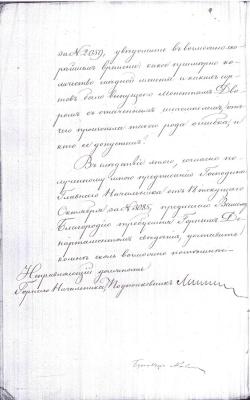 за № 2059, увѣдомить въ возможно ско-
рѣйшемъ времени: какое примѣрно ко-
личество мѣдной монеты и какихъ сор-
товъ было выпущено монетнымъ Дво-
ромъ съ означеннымъ штемпелемъ, отъ
чего произошла такого рода ошибка, и
кто ее допустилъ?
Въ послѣдствіе этого, согласно по-
лученному мною предписанію Господина
Главнаго Начальника отъ 18 текущаго
Октября за № 3085, предписываю Вашему
Благородію требуемыя Горнымъ Де-
партаментомъ свѣдѣнія, доставить
ко мнѣ сколь возможно поспѣшнѣе.
Исправляющій должность
Горнаго Начальника, Подполковникъ